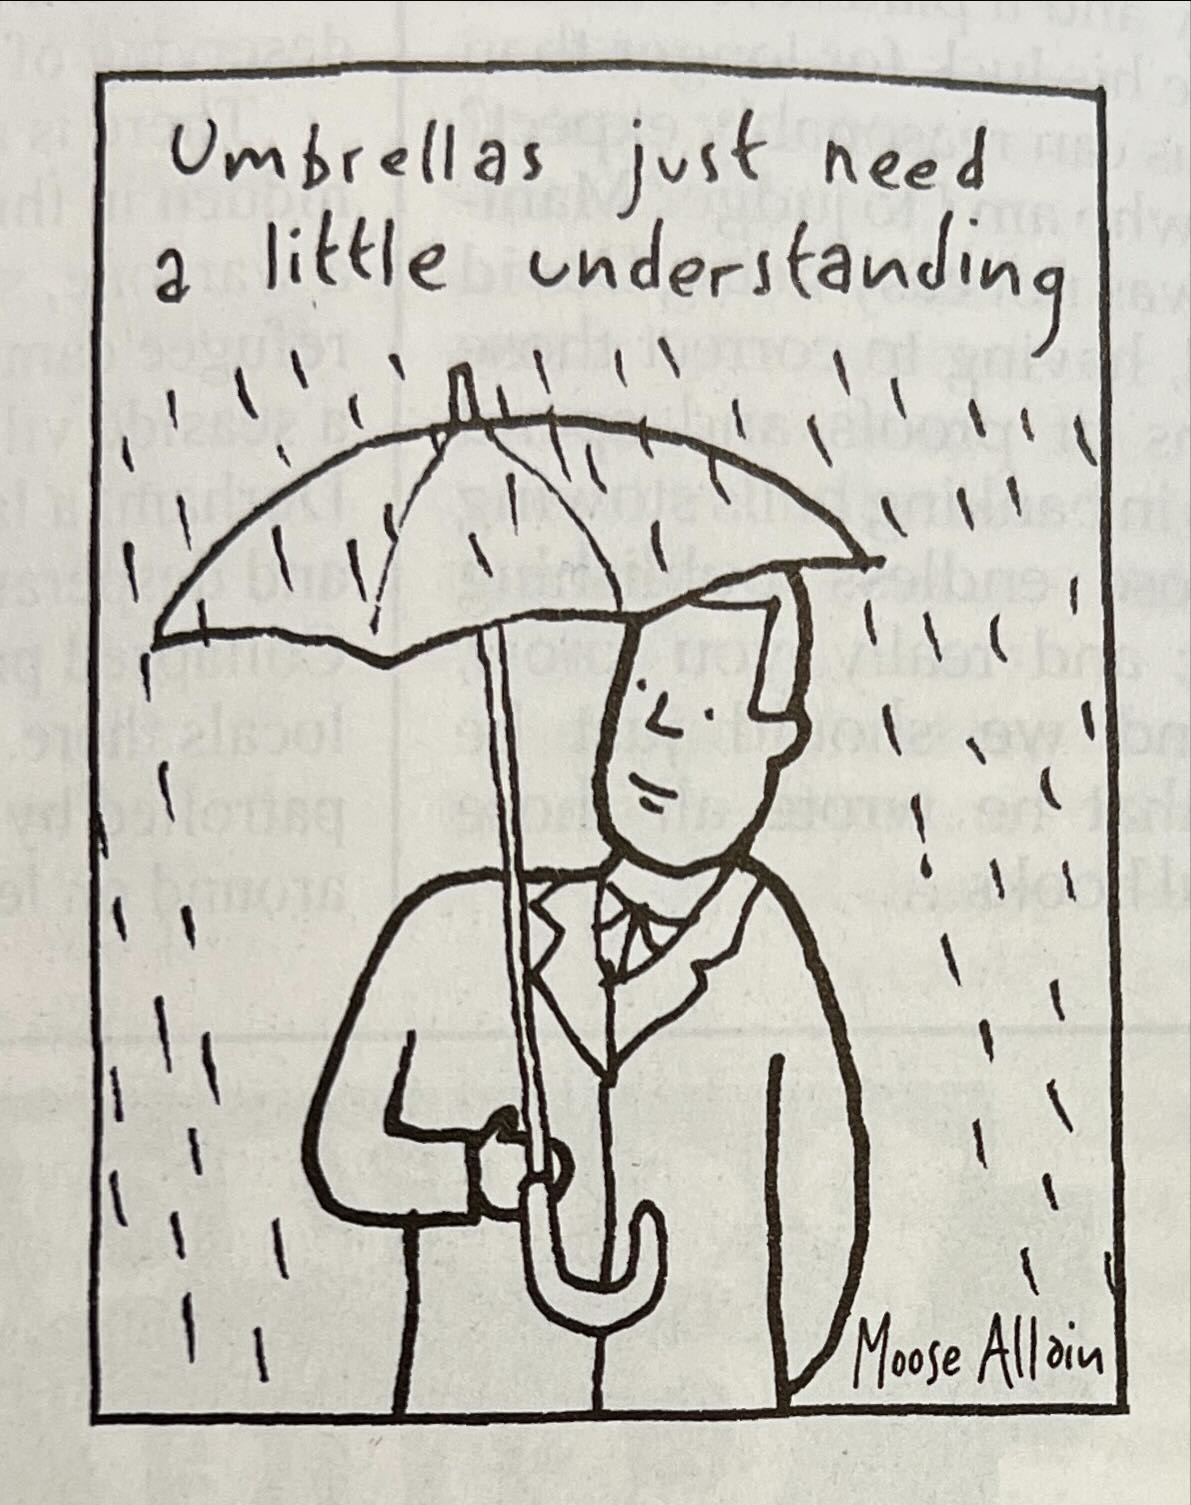 Umbrellas just need
a little understanding
Moose Allain